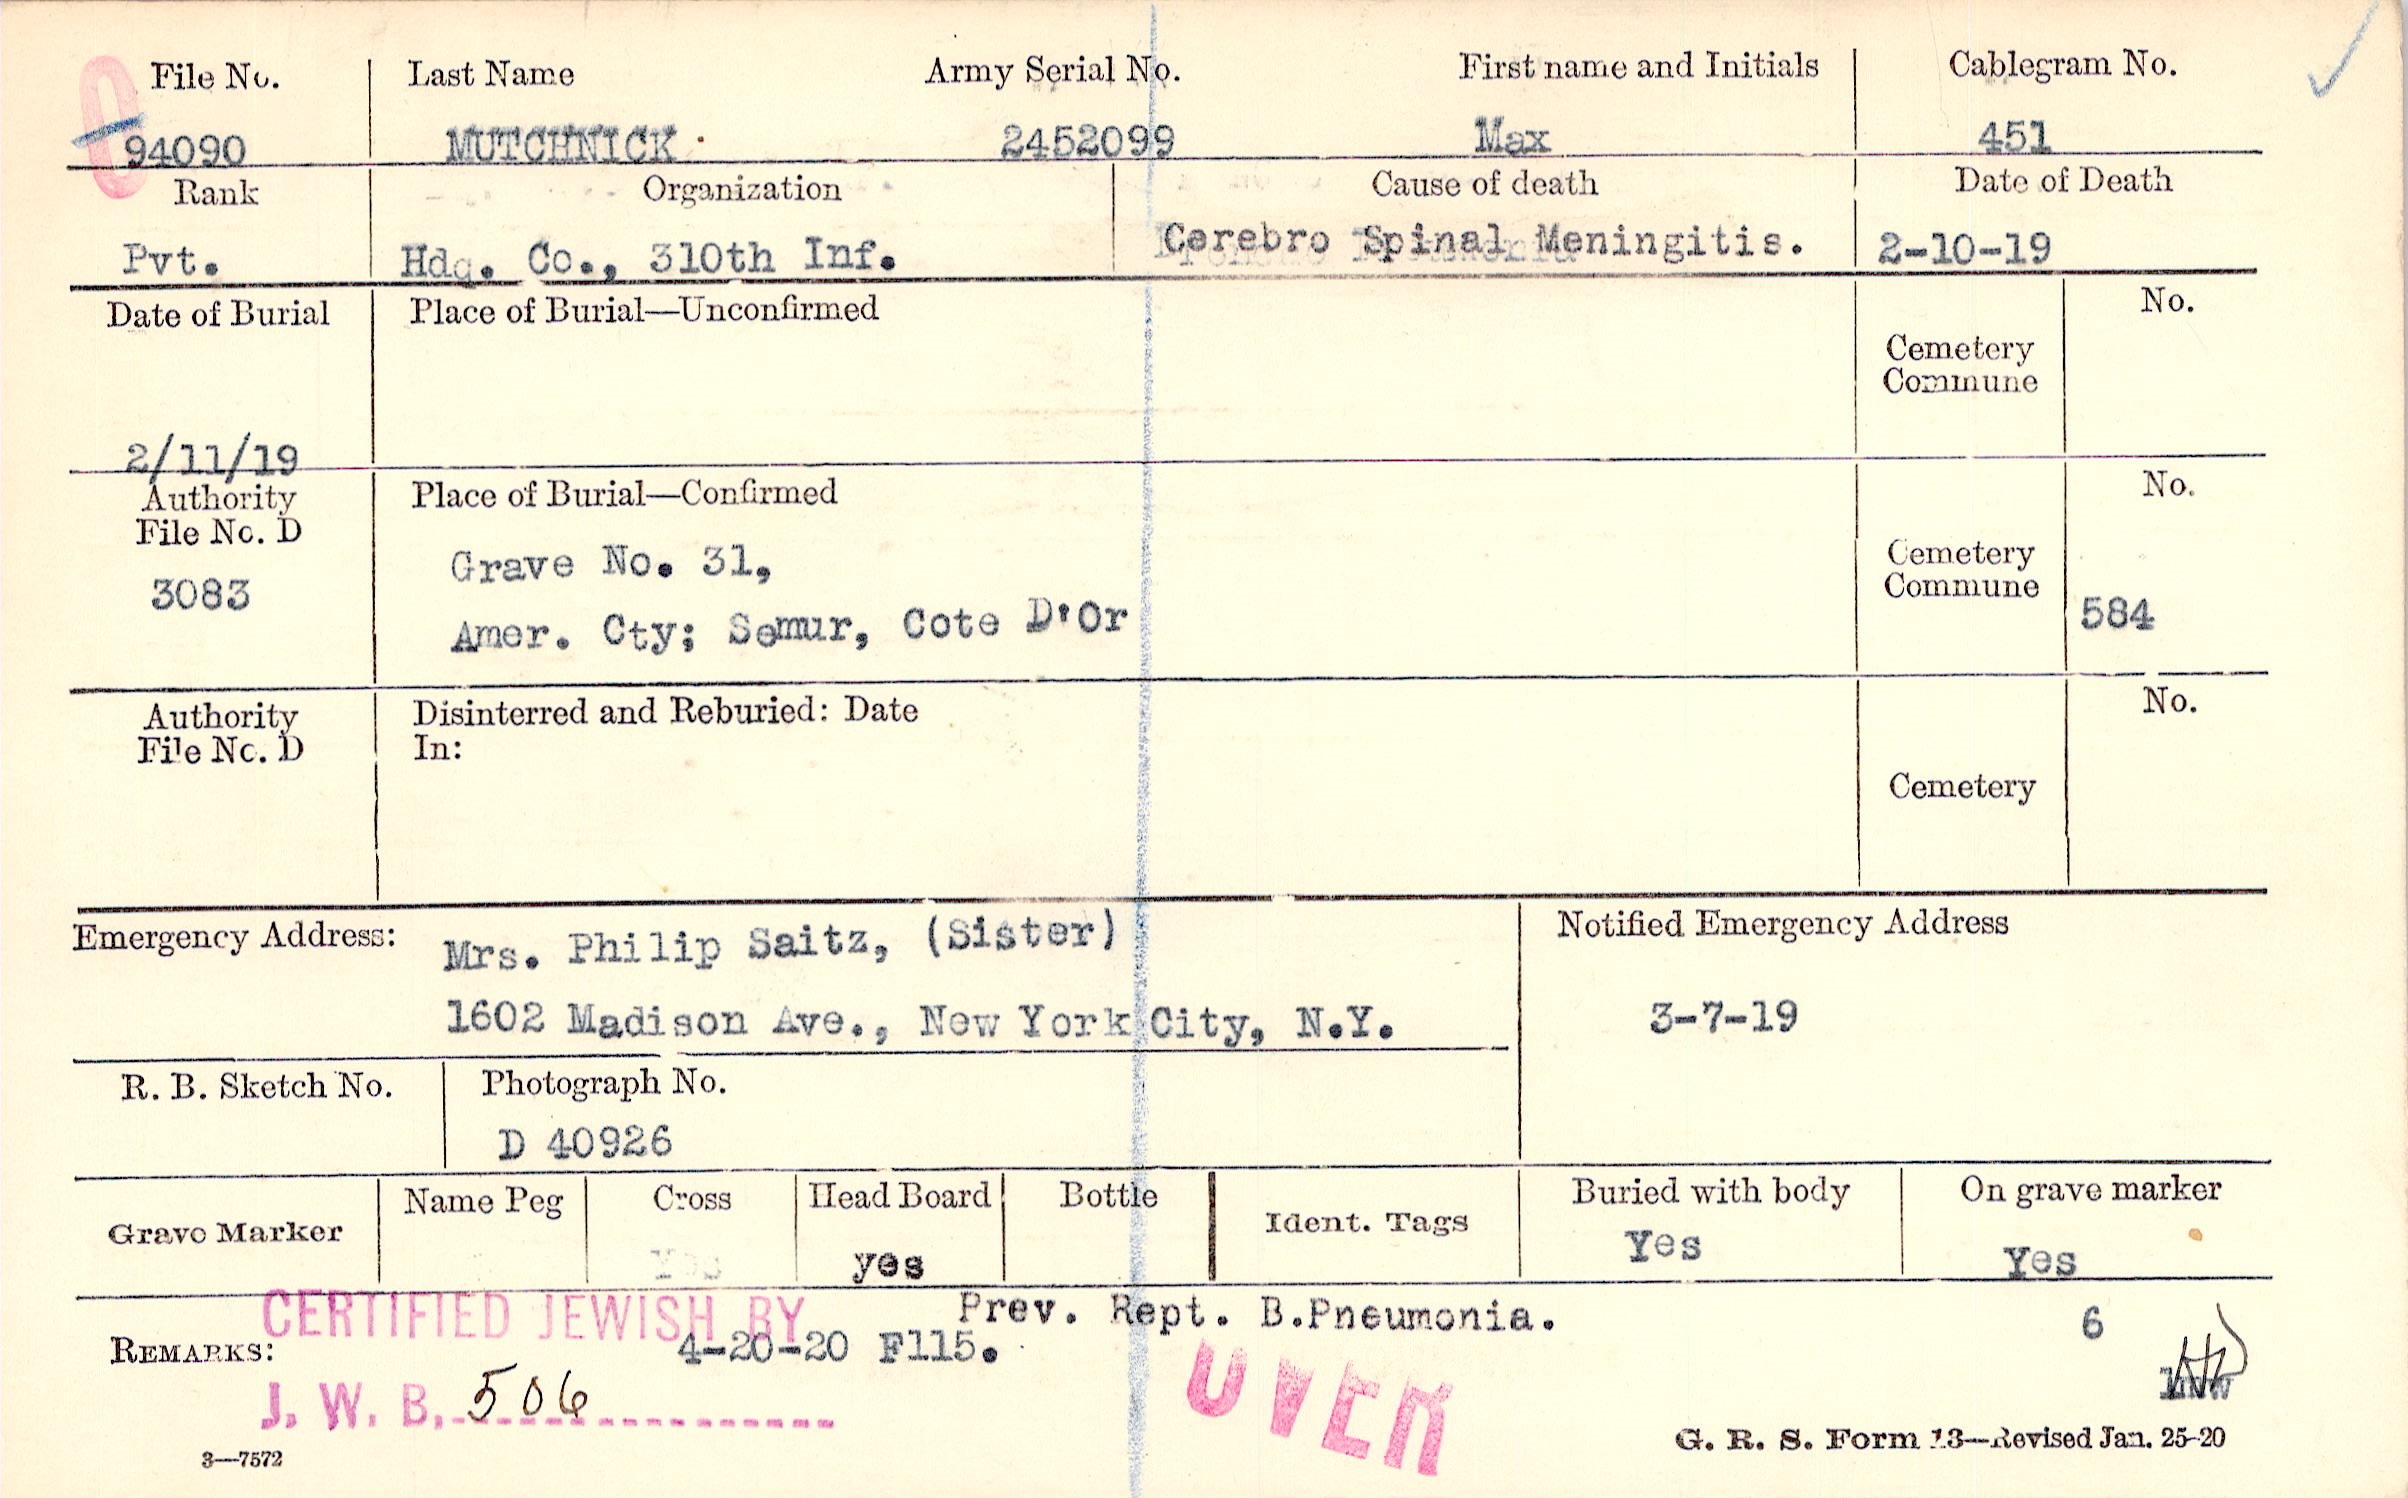 File No. Last Name Army Serial No. First name and Initials Cablegram No.
94090 MUTCHNICK 2452099 Max 451
Rank Organization Cause of death Date of Death
Pvt. Hdq. Co., 310th Inf. Cerebro Spinal Meningitis. 2-10-19
Date of Burial Place of Burial—Unconfirmed No.
Cemetery
Commune
2/11/19
Authority Place of Burial—Confirmed No.
File No. D
Grave No. 31, Cemetery
3083 Commune 584
Amer. Cty; Semur, Cote D'Or
Authority Disinterred and Reburied: Date No.
File No. D In:
Cemetery
Emergency Address: Mrs. Philip Saitz, (Sister) Notified Emergency Address
1602 Madison Ave., New York City, N.Y. 3-7-19
R. B. Sketch No. Photograph No.
D 40926
Grave Marker Name Peg Cross Head Board Bottle Ident. Tags Buried with body On grave marker
Yes yes Yes Yes
CERTIFIED JEWISH BY Prev. Rept. B.Pneumonia. 6
REMARKS: 4-20-20 F115.
J. W. B. 506 OVER
3—7572 G. R. S. Form 13—Revised Jan. 25-20